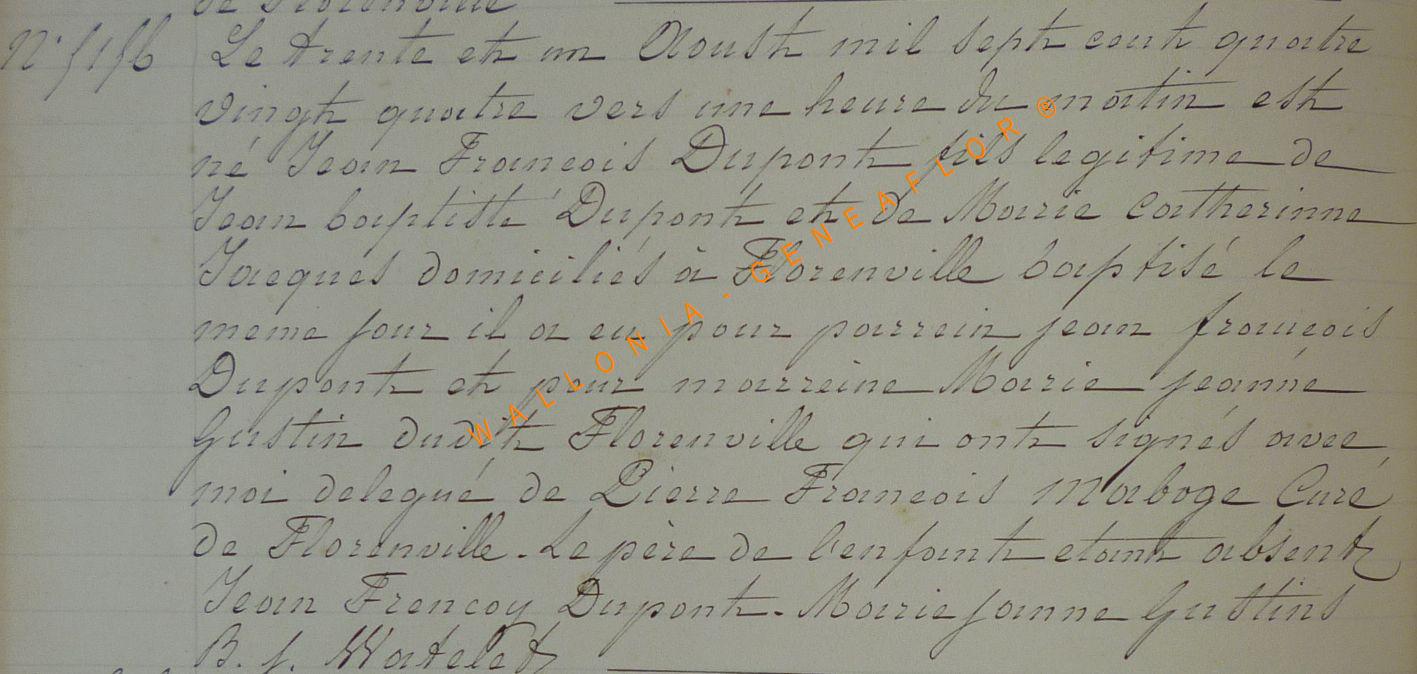 de Florenville
N° 5156 Le trente et un Aoust mil sept cent quatre
vingt quatre vers une heure du matin est
né Jean Francois Dupont fils legitime de
Jean baptiste Dupont et de Marie Catherinne
Jacques domiciliés à Florenville baptisé le
meme jour il a eu pour parrein jean francois
Dupont et pour marreine Marie jeanne
Gustin dudit Florenville qui ont signés avec
moi delegué de Pierre Francois Maboge Curé
de Florenville. Le père de l'enfant etant absent
Jean Frencoy Dupont. Marie Janne Gustins
B. J. Watelet
WALLONIA - GENEAFLOR ®